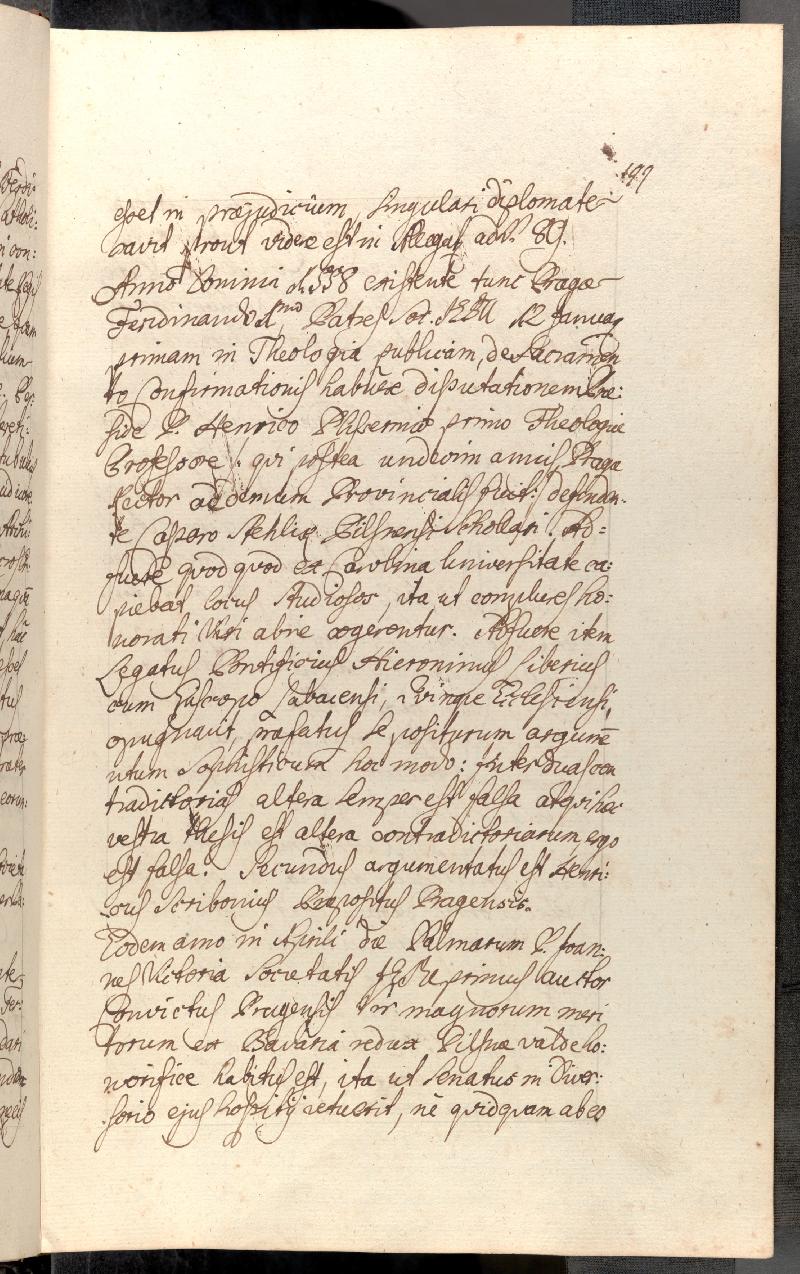 199
esset in præjudicium, singulari diplomate
cavit prout videre est in Allegat: adN: 89.
Anno Domini 1558 existente tunc Pragæ
Ferdinando Imo Patres Soc. JESU 12 January
primam in Theologia publicam, de Sacramen
to Confirmationis habuere disputationem Præ:
side P. Henrico Blisemio primo Theologiæ
Professore /: qui postea undecim annis Praga
Rector ac demum Provincialis fuit :/ defenden
te Casparo Stehlic Pilsnensi Scholari. Ad=
fuere quod quod ex Carolina Universitate ca:
piebat locus Studiosos, ita ut complures ho:
norati Viri abire cogerentur. Adfuere item
Legatus Pontificius Hieronimus Siberius
cum Episcopo Sabacensi, Quinque Ecclesiensi,
opugnavit, præfatus se positurum argume
ntum Sophisticum hoc modo: Inter duas con
tradictorias altera semper est falsa atqui hæc
vestra thesis est altera contradictoriarum ergo
est falsa. Secundus argumentatus est Henri:
cus Scribonius Præpositus Pragensis.
Eodem anno in Aprili die Palmarum P. Joan:
nes Victoria Societatis JESU primus auctor
Convictus Pragensis Vir magnorum meri
torum ex Bavaria redux Pilsnæ valde ho:
norifice habitus est, ita ut Senatus in Diver:
sorio ejus hospitij vetuerit, nè quidquam ab eo